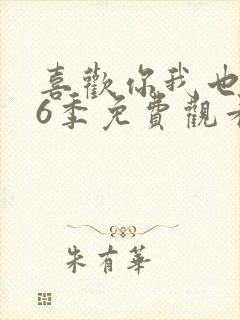 喜歡你我也
6季免費觀看
朱有華